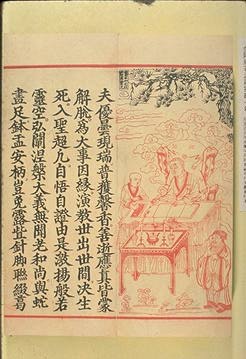 夫優曇現瑞普獲馨香善逝應真皆蒙
解脫為大事因緣演教世出世間決生
死入聖超凢自悟自證由是激揚般若
靈空弘闡涅槃大義無聞老和尚與蛇
畫足鉢盂安柄豈免露些針脚聮綴葛